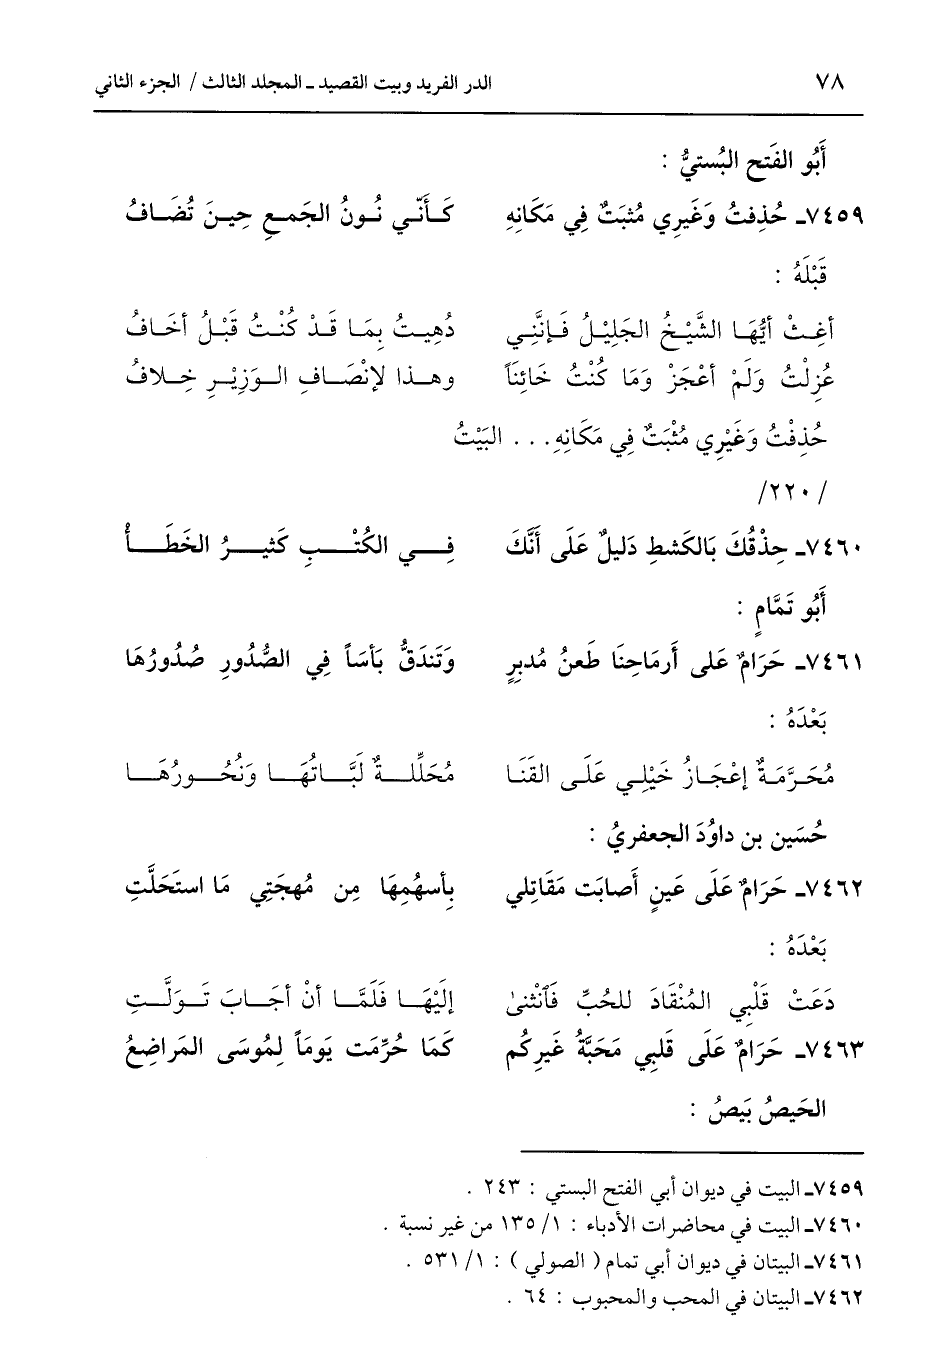 ٧٨ الدر الفريد وبيت القصيد ـ المجلد الثالث / الجزء الثاني
أَبُو الفَتح البُستيُّ :
٧٤٥٩ـ حُذِفتُ وَغَيرِي مُثبَتٌ فِي مَكَانِهِ كَأَنّي نُونُ الجَمعِ حِينَ تُضَافُ
قَبْلَهُ :
أغِثْ أيُّهَا الشَّيْخُ الجَلِيْلُ فَإنَّنِي دُهِيتُ بِمَا قَدْ كُنْتُ قَبْلُ أخَافُ
عُزِلْتُ وَلَمْ أعْجَزْ وَمَا كُنْتُ خَائِنَاً وهذا لإنْصَافِ الوَزِيْرِ خِلافُ
حُذِفْتُ وَغَيْرِي مُثْبَتٌ فِي مَكَانِهِ . . . البَيْتُ
/ ٢٢٠/
٧٤٦٠ـ حِذْقُكَ بَالكَشطِ دَلِيلٌ عَلَى أَنَّكَ فِي الكُتْبِ كَثيرُ الخَطَأْ
أَبُو تَمَّامٍ :
٧٤٦١ـ حَرَامٌ عَلى أَرمَاحِنَا طَعنُ مُدبِرٍ وَتَندَقُّ بَأسَاً فِي الصُّدُورِ صُدُورُهَا
بَعْدَهُ :
مُحَرَّمَةٌ إعْجَازُ خَيْلِي عَلَى القَنَا مُحَلِّلةٌ لَبَّاتُهَا وَنُحُورُهَا
حُسَين بن داوُدَ الجعفريُ :
٧٤٦٢ـ حَرَامٌ عَلَى عَينٍ أَصابَت مَقَاتِلي بِأسهُمِهَا مِن مُهجَتِي مَا استَحَلَّتِ
بَعْدَهُ :
دَعَتْ قَلْبِي المُنْقَادَ للحُبِّ فَآنْثنىٰ إلَيْهَا فَلَمَّا أنْ أجَابَ تَوَلَّتِ
٧٤٦٣ـ حَرَامٌ عَلَى قلبِي مَحَبَّةُ غَيرِكُم كَمَا حُرِّمَت يَومَاً لِمُوسَى المَراضِعُ
الحَيصُ بَيصُ :
٧٤٥٩ـ البيت في ديوان أبي الفتح البستي : ٢٤٣ .
٧٤٦٠ـ البيت في محاضرات الأدباء : ١/ ١٣٥ من غير نسبة .
٧٤٦١ـ البيتان في ديوان أبي تمام ( الصولي ) : ١/ ٥٣١ .
٧٤٦٢ـ البيتان في المحب والمحبوب : ٦٤ .